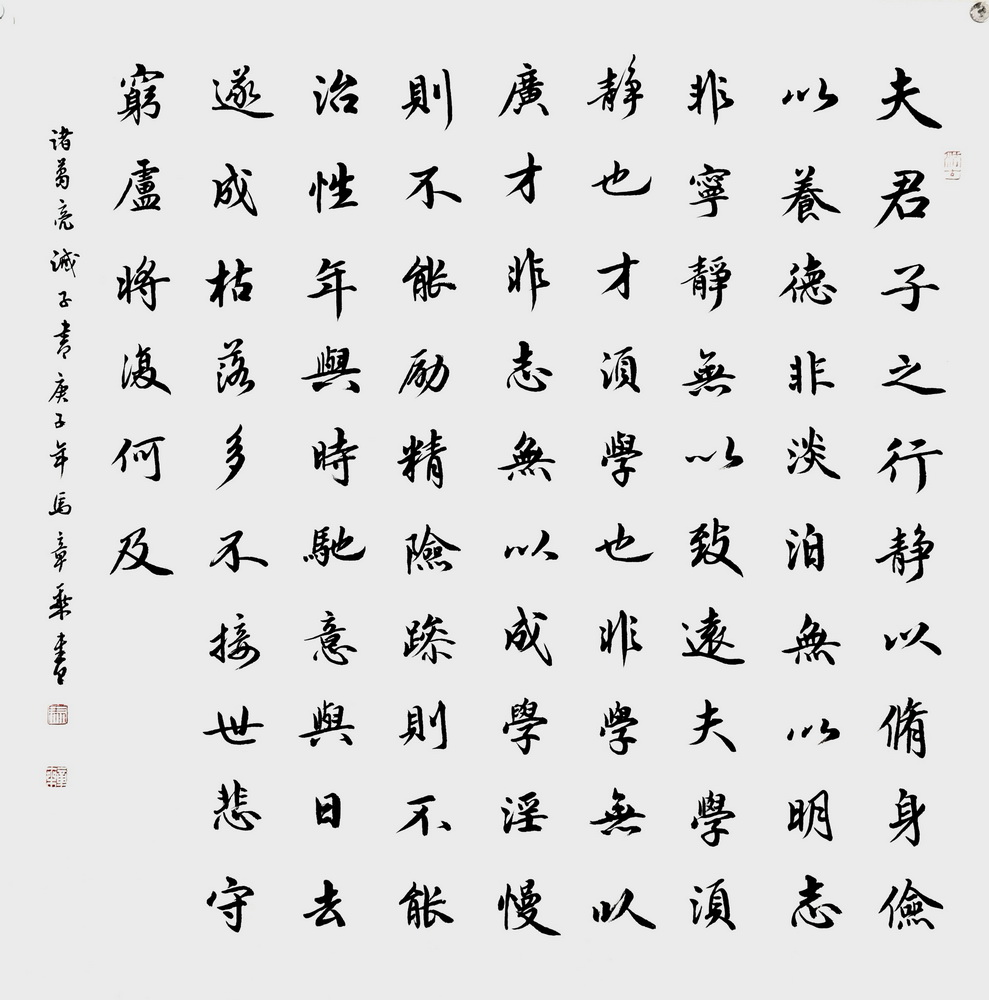 夫君子之行静以脩身儉
以養德非淡泊無以明志
非寧靜無以致遠夫學須
静也才須學也非學無以
廣才非志無以成學淫慢
則不能励精險躁則不能
治性年與時馳意與日去
遂成枯落多不接世悲守
窮盧將復何及
诸葛亮诫子书庚子年馬章乘書